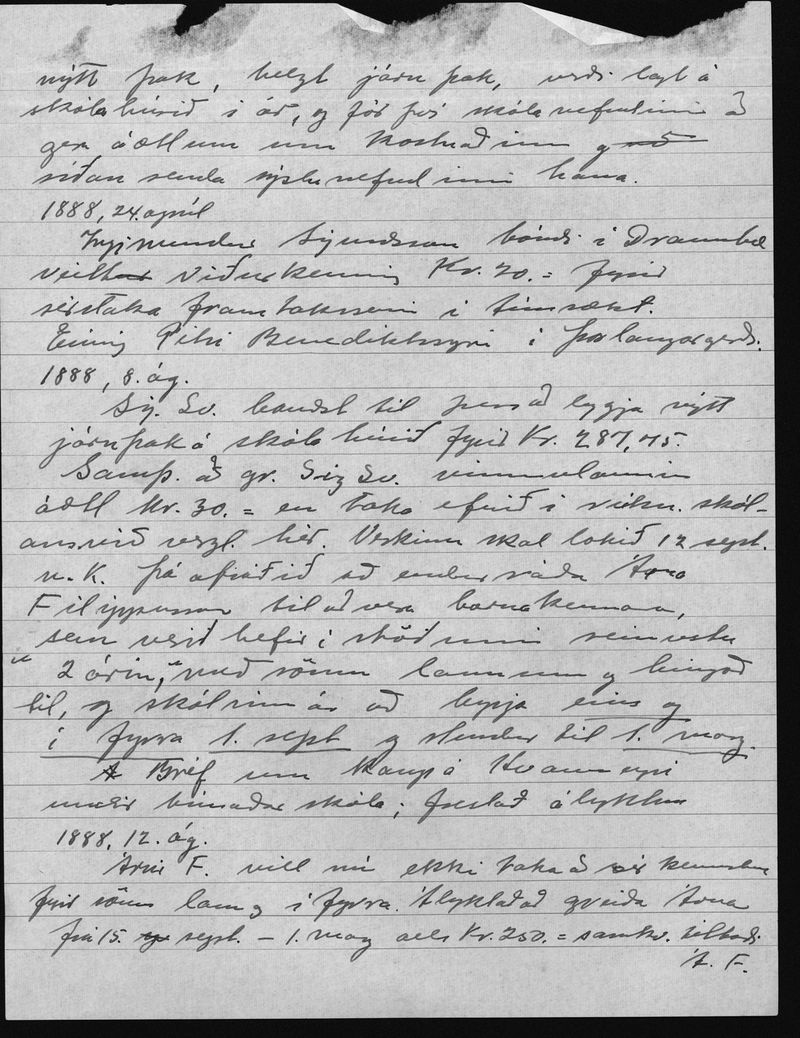 nýtt þak, helzt járnþak, verði lagt á
skólahúsið í ár, og fól því skólanefndinni að
gera áætlun um kostnaðinn og
síðan senda sýslunefndinni hana.
1888, 24. apríl
Ingimundur Sigurðsson bóndi í Draumbæ
veitt viðurkenning Kr. 20. = fyrir
sérstaka framtakssemi í túnrækt.
Einnig Pétri Benediktssyni í Þorlaugargerði.
1888, 8. ág.
Sig. Sv. bauðst til þess að leggja nýtt
járnþak á skólahúsið fyrir Kr. 287,75.
Samþ. að gr. Sig Sv. vinnulaunin
áætl Kr. 30. = en taka efnið í reikn. skól-
ans við verzl. hér. Verkinu skal lokið 12 sept.
n. k. Þá afráðið að endurráða Árna
Filippusson til að vera barnakennara,
sem verið hefir í stöðunni seinustu
"2 árin," með sömu launum og hingað
til, og skólinn á að byrja eins og
í fyrra 1. sept og stendur til 1. maí.
Bréf um kaup á Hvanneyri
undir búnaðarskóla; frestað ályktun
1888, 12. ág.
Árni F. vill nú ekki taka að sér kennsluna
fyrir sömu laun og í fyrra. Ályktað að greiða Árna
frá 15. sept. – 1. maí alls Kr. 250. = samkv. tilboði
Á. F.